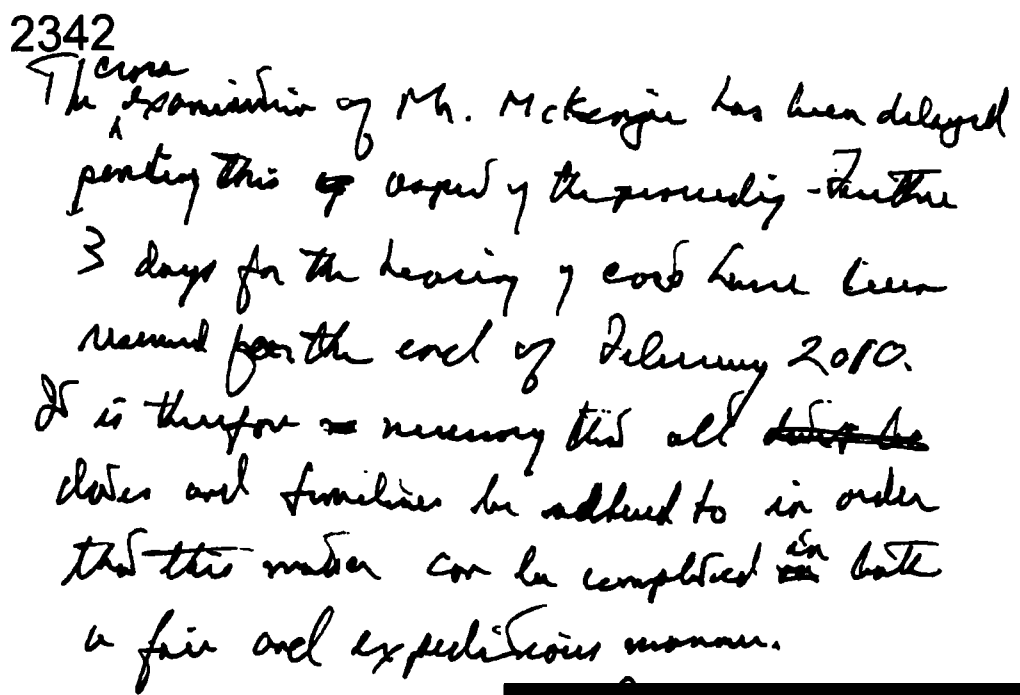 2342
The cross examination of Mr. McKenzie has been delayed
pending this aspect of the proceeding - Further
3 days for the hearing of case have been
reserved for the end of February 2010.
It is therefore necessary that all
dates and timelines be adhered to in order
that this matter can be completed in both
a fair and expeditious manner.